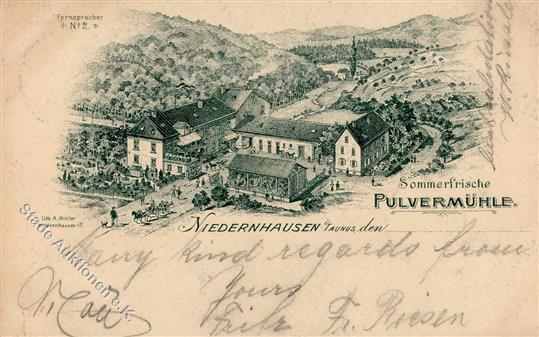 Fernsprecher
No 2.
Sommerfrische
PULVERMÜHLE.
Lith. A. Müller
NIEDERNHAUSEN i/TAUNUS, den
Stade Auktionen e.K.
Many kind regards from
Yours
Fritz Fr. Riesen